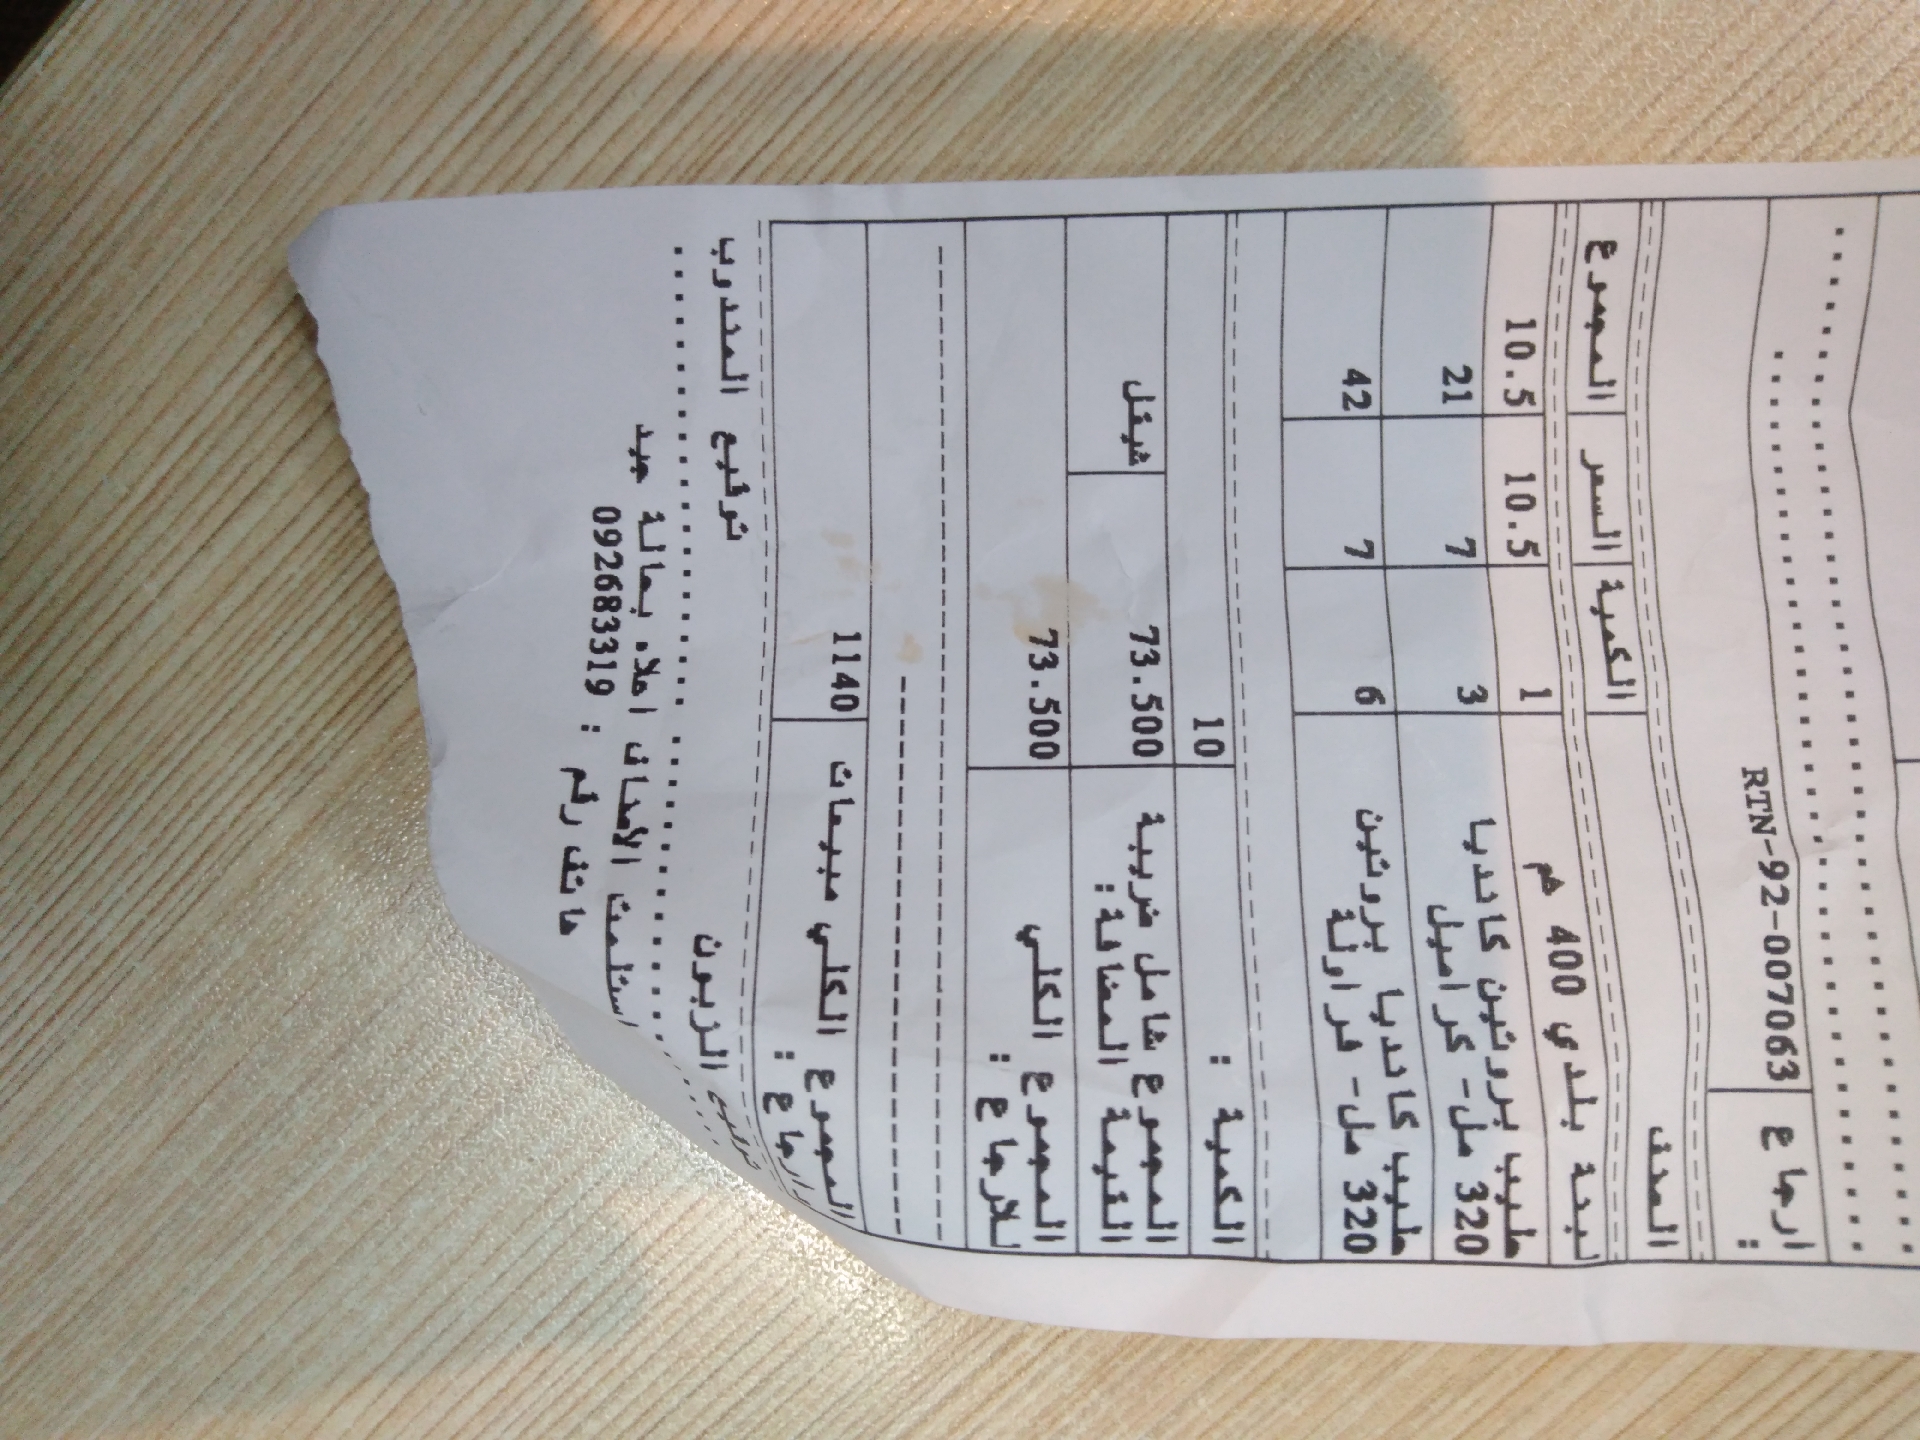 ارجاع : RTN-92-007063
الصنف الكمية السعر المجموع
لبنة بلدي 400 غم 1 10.5 10.5
حليب بروتين كانديا
320 مل- كراميل 3 7 21
حليب كانديا بروتين
320 مل- فراولة 6 7 42
الكمية : 10
المجموع شامل ضريبة القيمة المضافة: 73.500 شيقل
المجموع الكلي للارجاع : 73.500
المجموع الكلي مبيعات دارجاع : 1140
توقيع الزبون توقيع المندوب
استلمت الأصناف اعلاه بحالة جيد
هاتف رقم : 092683319